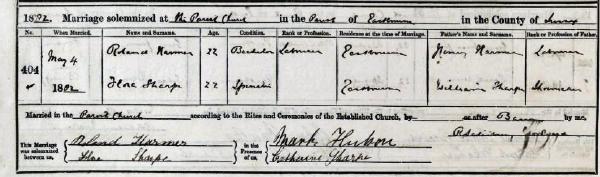 1882. Marriage solemnized at the Parish Church in the Parish of Eastbourne in the County of Sussex
No. When Married. Name and Surname. Age. Condition. Rank or Profession. Residence at the time of Marriage. Father's Name and Surname. Rank or Profession of Father.
404 May 4 1882 Roland Harmer 22 Bachelor Labourer Eastbourne Henry Harmer Labourer
Sharpe 22 Spinster Eastbourne William Sharpe
Married in the Parish Church according to the Rites and Ceremonies of the Established Church, by or after Banns by me,
This Marriage was solemnized between us, Roland Harmer Sharpe in the Presence of us, Mark Catherine Sharpe